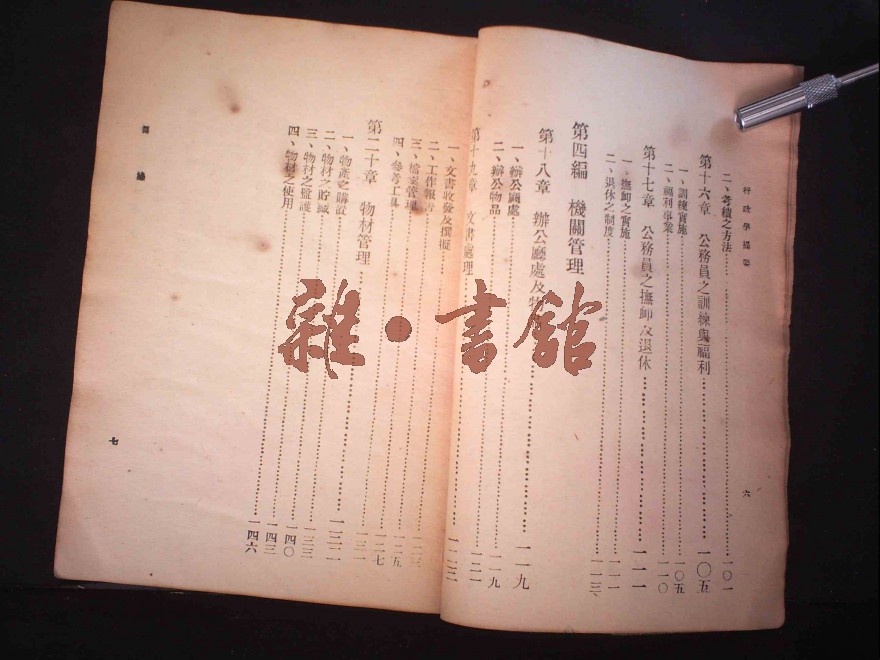 行政學提要
六
二、考績之方法 一〇一
第十六章 公務員之訓練與福利 一〇五
一、訓練實施 一〇五
二、福利事業 一一〇
第十七章 公務員之撫卹及退休 一一一
一、撫卹之實施 一一一
二、退休之制度 一一三
第四編 機關管理
第十八章 辦公廳處及物 一一九
一、辦公廳處 一一九
二、辦公物品
第十九章 文書處理 一二一
一、文書收發及撰擬 一二三
二、工作報告
三、檔案管理 一二五
四、參考工具 一二七
第二十章 物材管理
一、物產之購置 一三二
二、物材之貯藏 一三三
三、物材之監護 一四〇
四、物材之使用 一四三
一四六
七
雜·書館